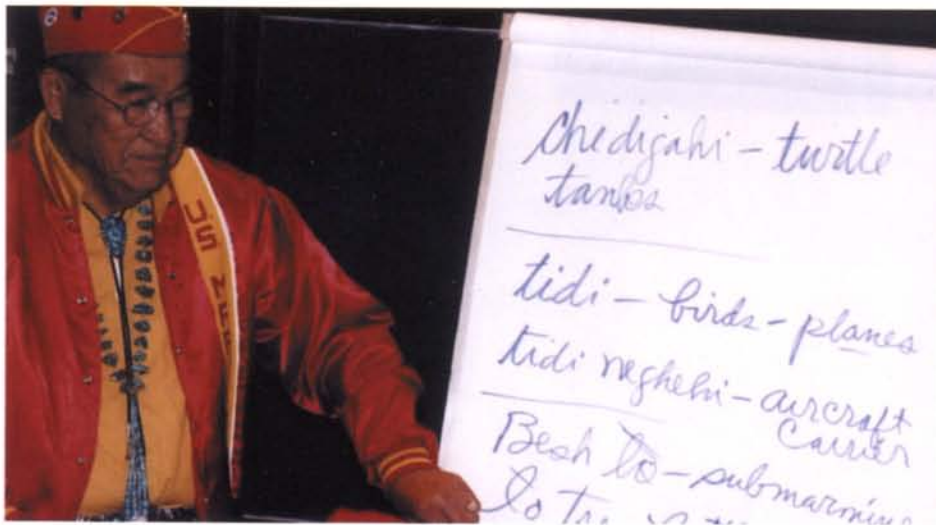 US
chedigahi - turtle
tanks
tidi - birds - planes
tidi neghehi - aircraft
carrier
Besh lo - submarine
lo